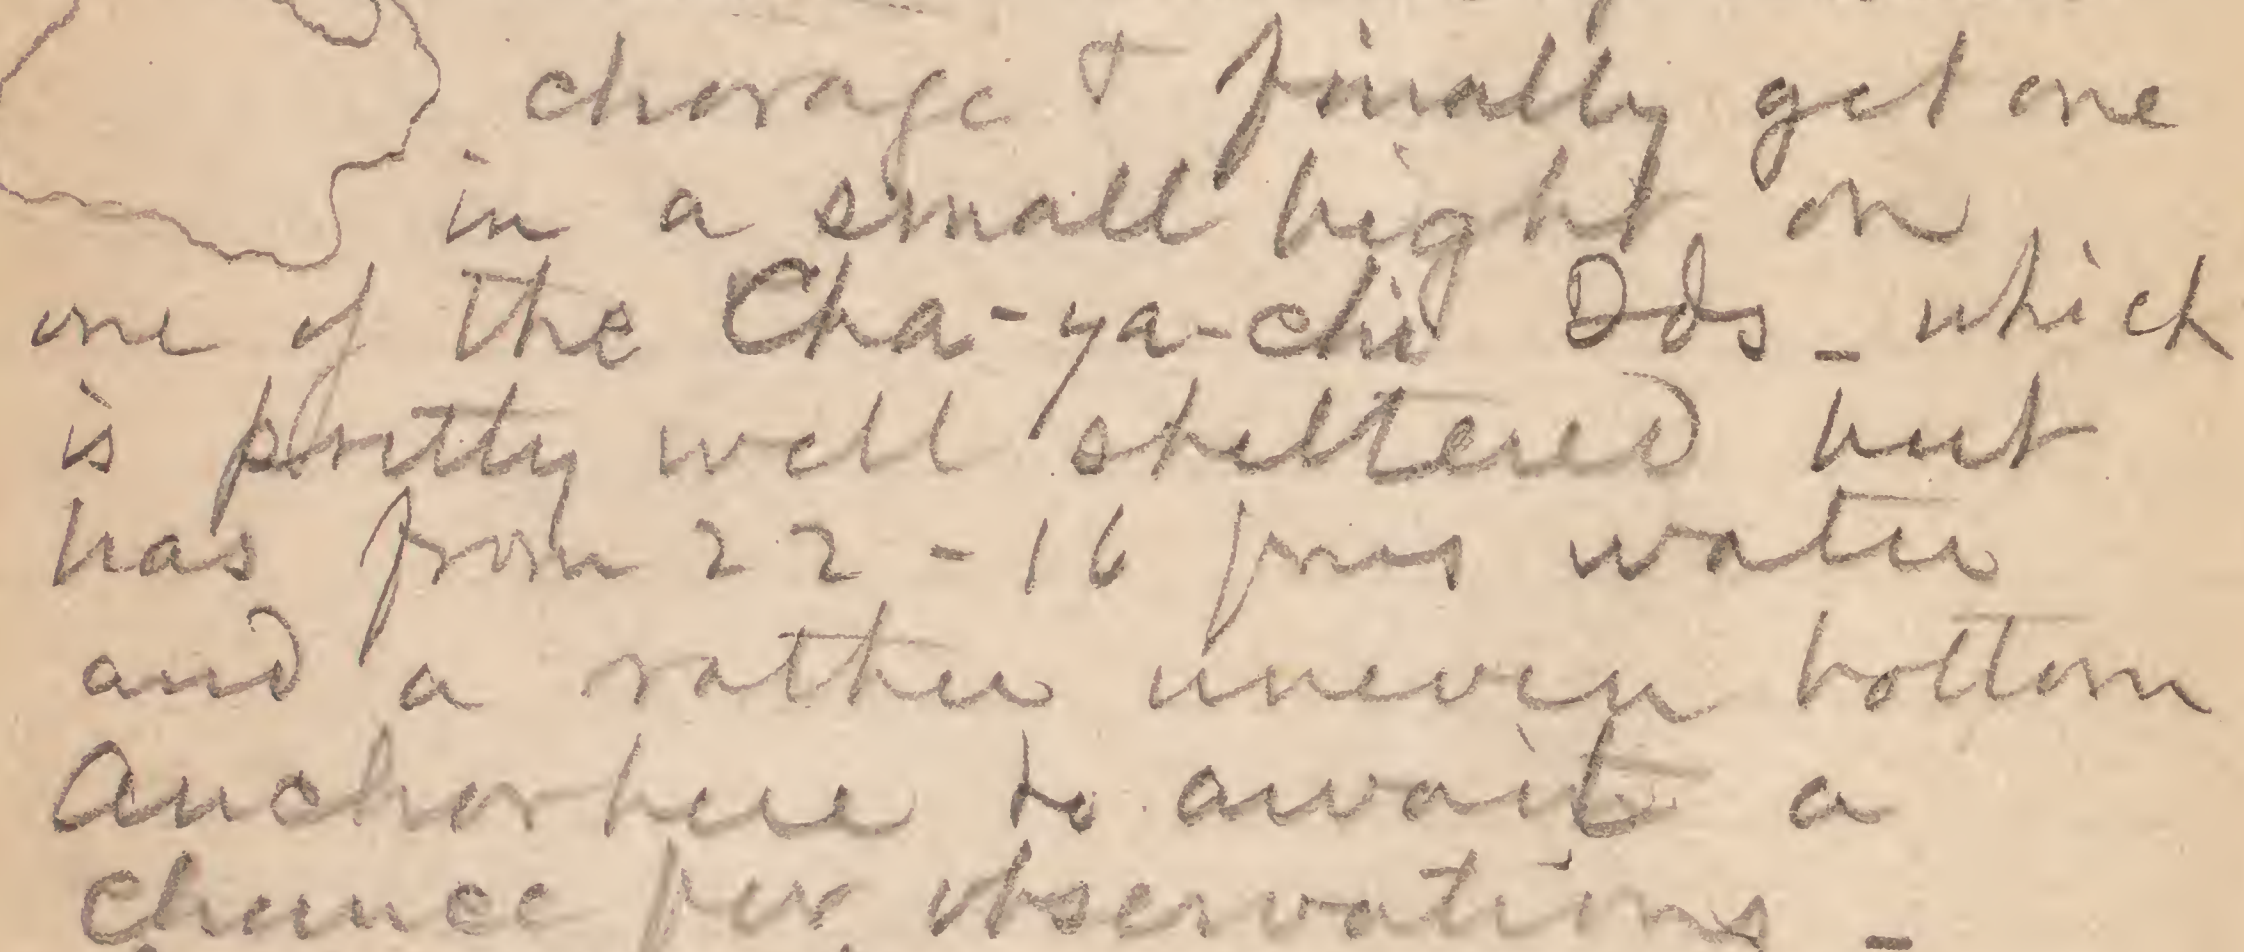 chorage & finally get one
in a small bight on
one of the Cha-ya-chi Ids - which
is pretty well sheltered but
has from 22-16 fms water
and a rather uneven bottom
Anchor here to await a
chance for observations -